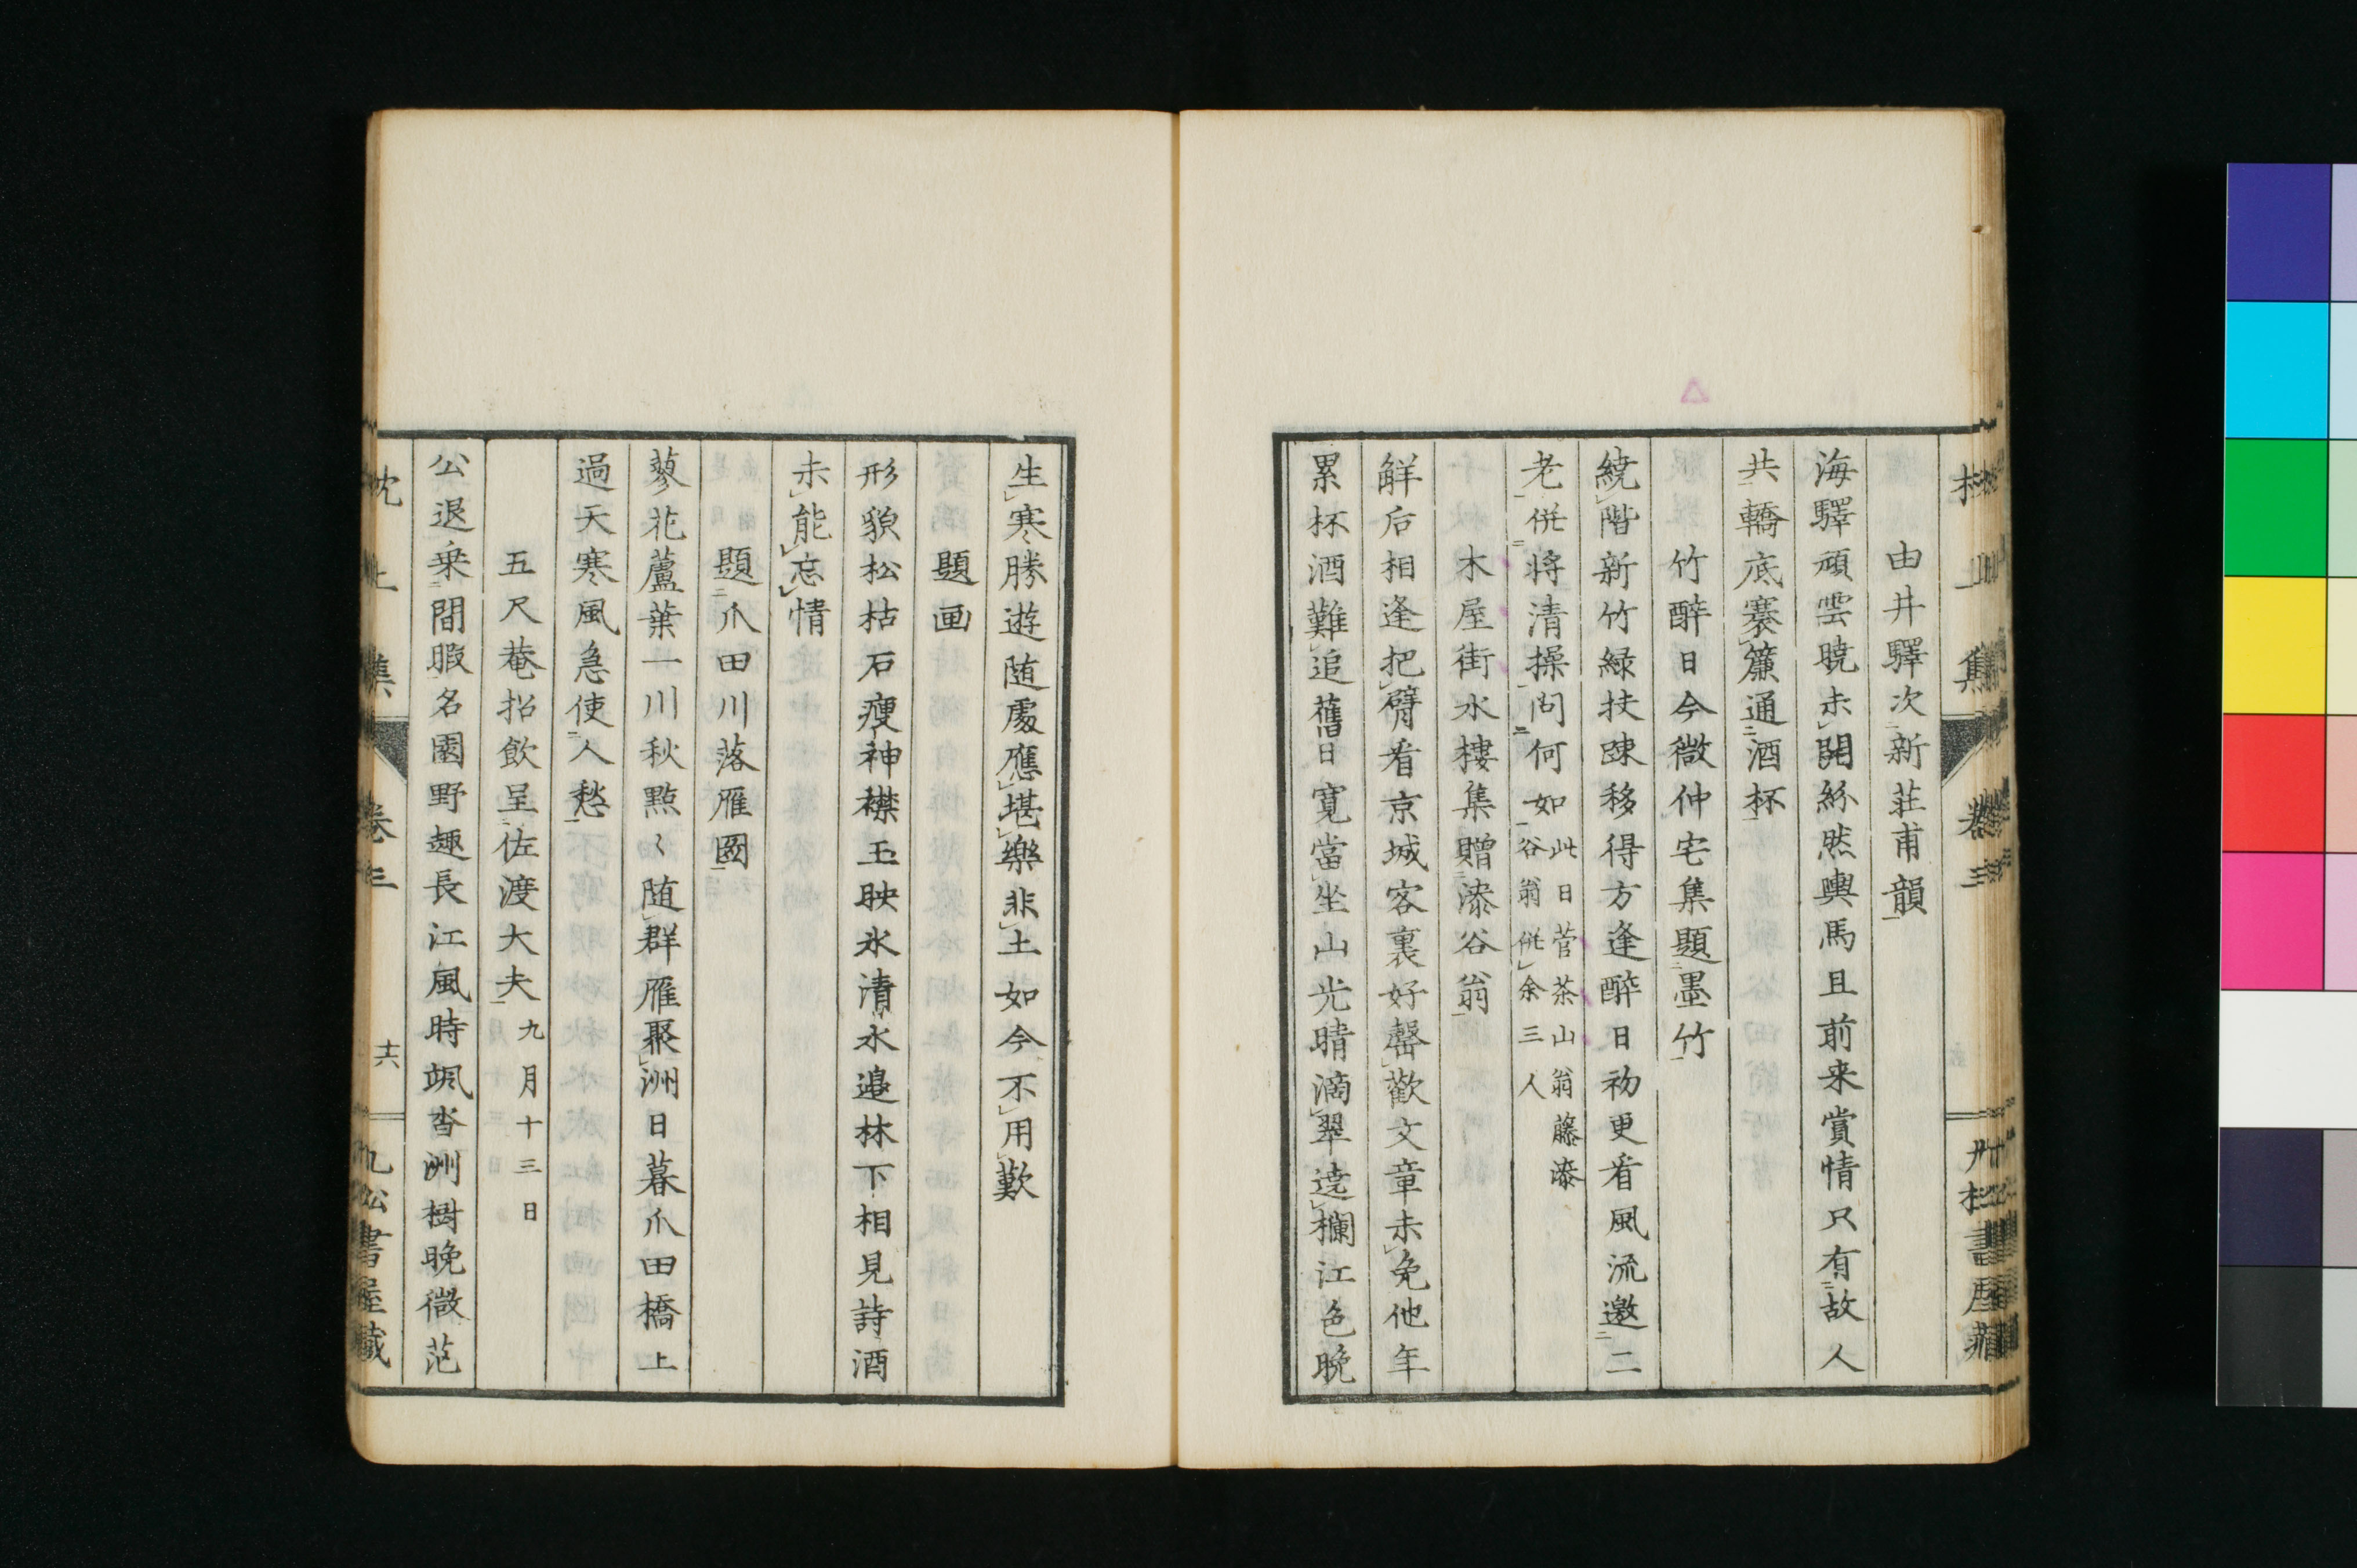 由井驛次新荘甫韻
海驛頑雲曉未開紛然輿馬且前来賞情只有故人
共轎底褰簾通酒杯
竹醉日今微仲宅集題墨竹
繞階新竹緑扶踈移得方逢醉日初更看風流邀二
老併将清操問何如此日菅茶山翁藤漆
谷翁併余三人
木屋街水樓集贈漆谷翁
觧后相逢把臂看京城客裏好罄歡文章未免他年
累杯酒難追舊日寛當坐山光晴滴翠遶欄江色晩
生寒勝遊随處應堪樂非土如今不用歎
題画
形貌松枯石瘦神襟玉映氷清水邉林下相見詩酒
未能忘情
題爪田川落雁圖
蓼花蘆葉一川秋點〻随群雁聚洲日暮爪田橋上
過天寒風急使人愁
五尺菴招飲呈佐渡大夫九月十三日
公退乗間暇名園野趣長江風時颯沓洲樹晩微茫
枕上集 卷三 十六 九松書屋藏